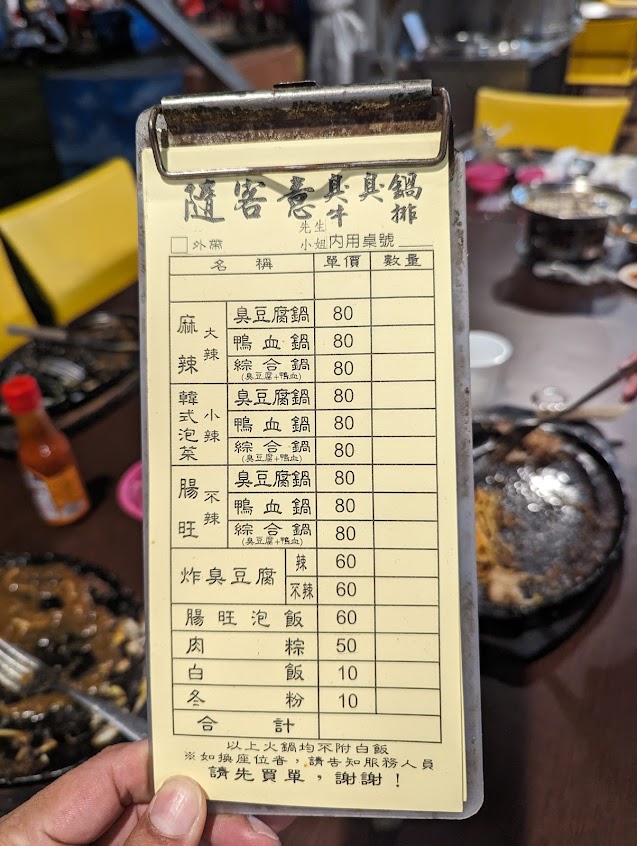 隨客意臭臭鍋
牛排
□外帶 先生小姐 內用桌號
名稱 單價 數量
麻辣 大辣 臭豆腐鍋 80
鴨血鍋 80
綜合鍋 80
(臭豆腐+鴨血)
韓式泡菜 小辣 臭豆腐鍋 80
鴨血鍋 80
綜合鍋 80
(臭豆腐+鴨血)
腸旺 不辣 臭豆腐鍋 80
鴨血鍋 80
綜合鍋 80
(臭豆腐+鴨血)
炸臭豆腐 辣 60
不辣 60
腸旺泡飯 60
肉粽 50
白飯 10
冬粉 10
合計
以上火鍋均不附白飯
※如換座位者,請告知服務人員
請先買單,謝謝!